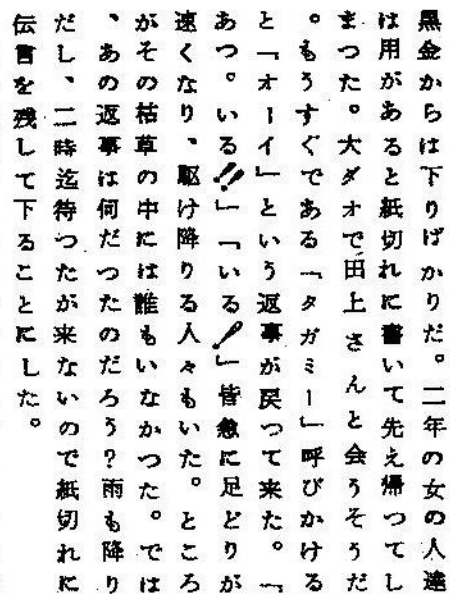 黒金からは下りばかりだ。二年の女の人達
は用があると紙切れに書いて先え帰つてし
まつた。大ダオで田上さんと会うそうだ
。もうすぐである「タガミー」呼びかける
と「オーイ」という返事が戻つて来た。「
あつ。いる!!」「いる!」皆急に足どりが
速くなり、駆け降りる人々もいた。ところ
がその枯草の中には誰もいなかつた。では
、あの返事は何だつたのだろう?雨も降り
だし、二時迄待つたが来ないので紙切れに
伝言を残して下ることにした。